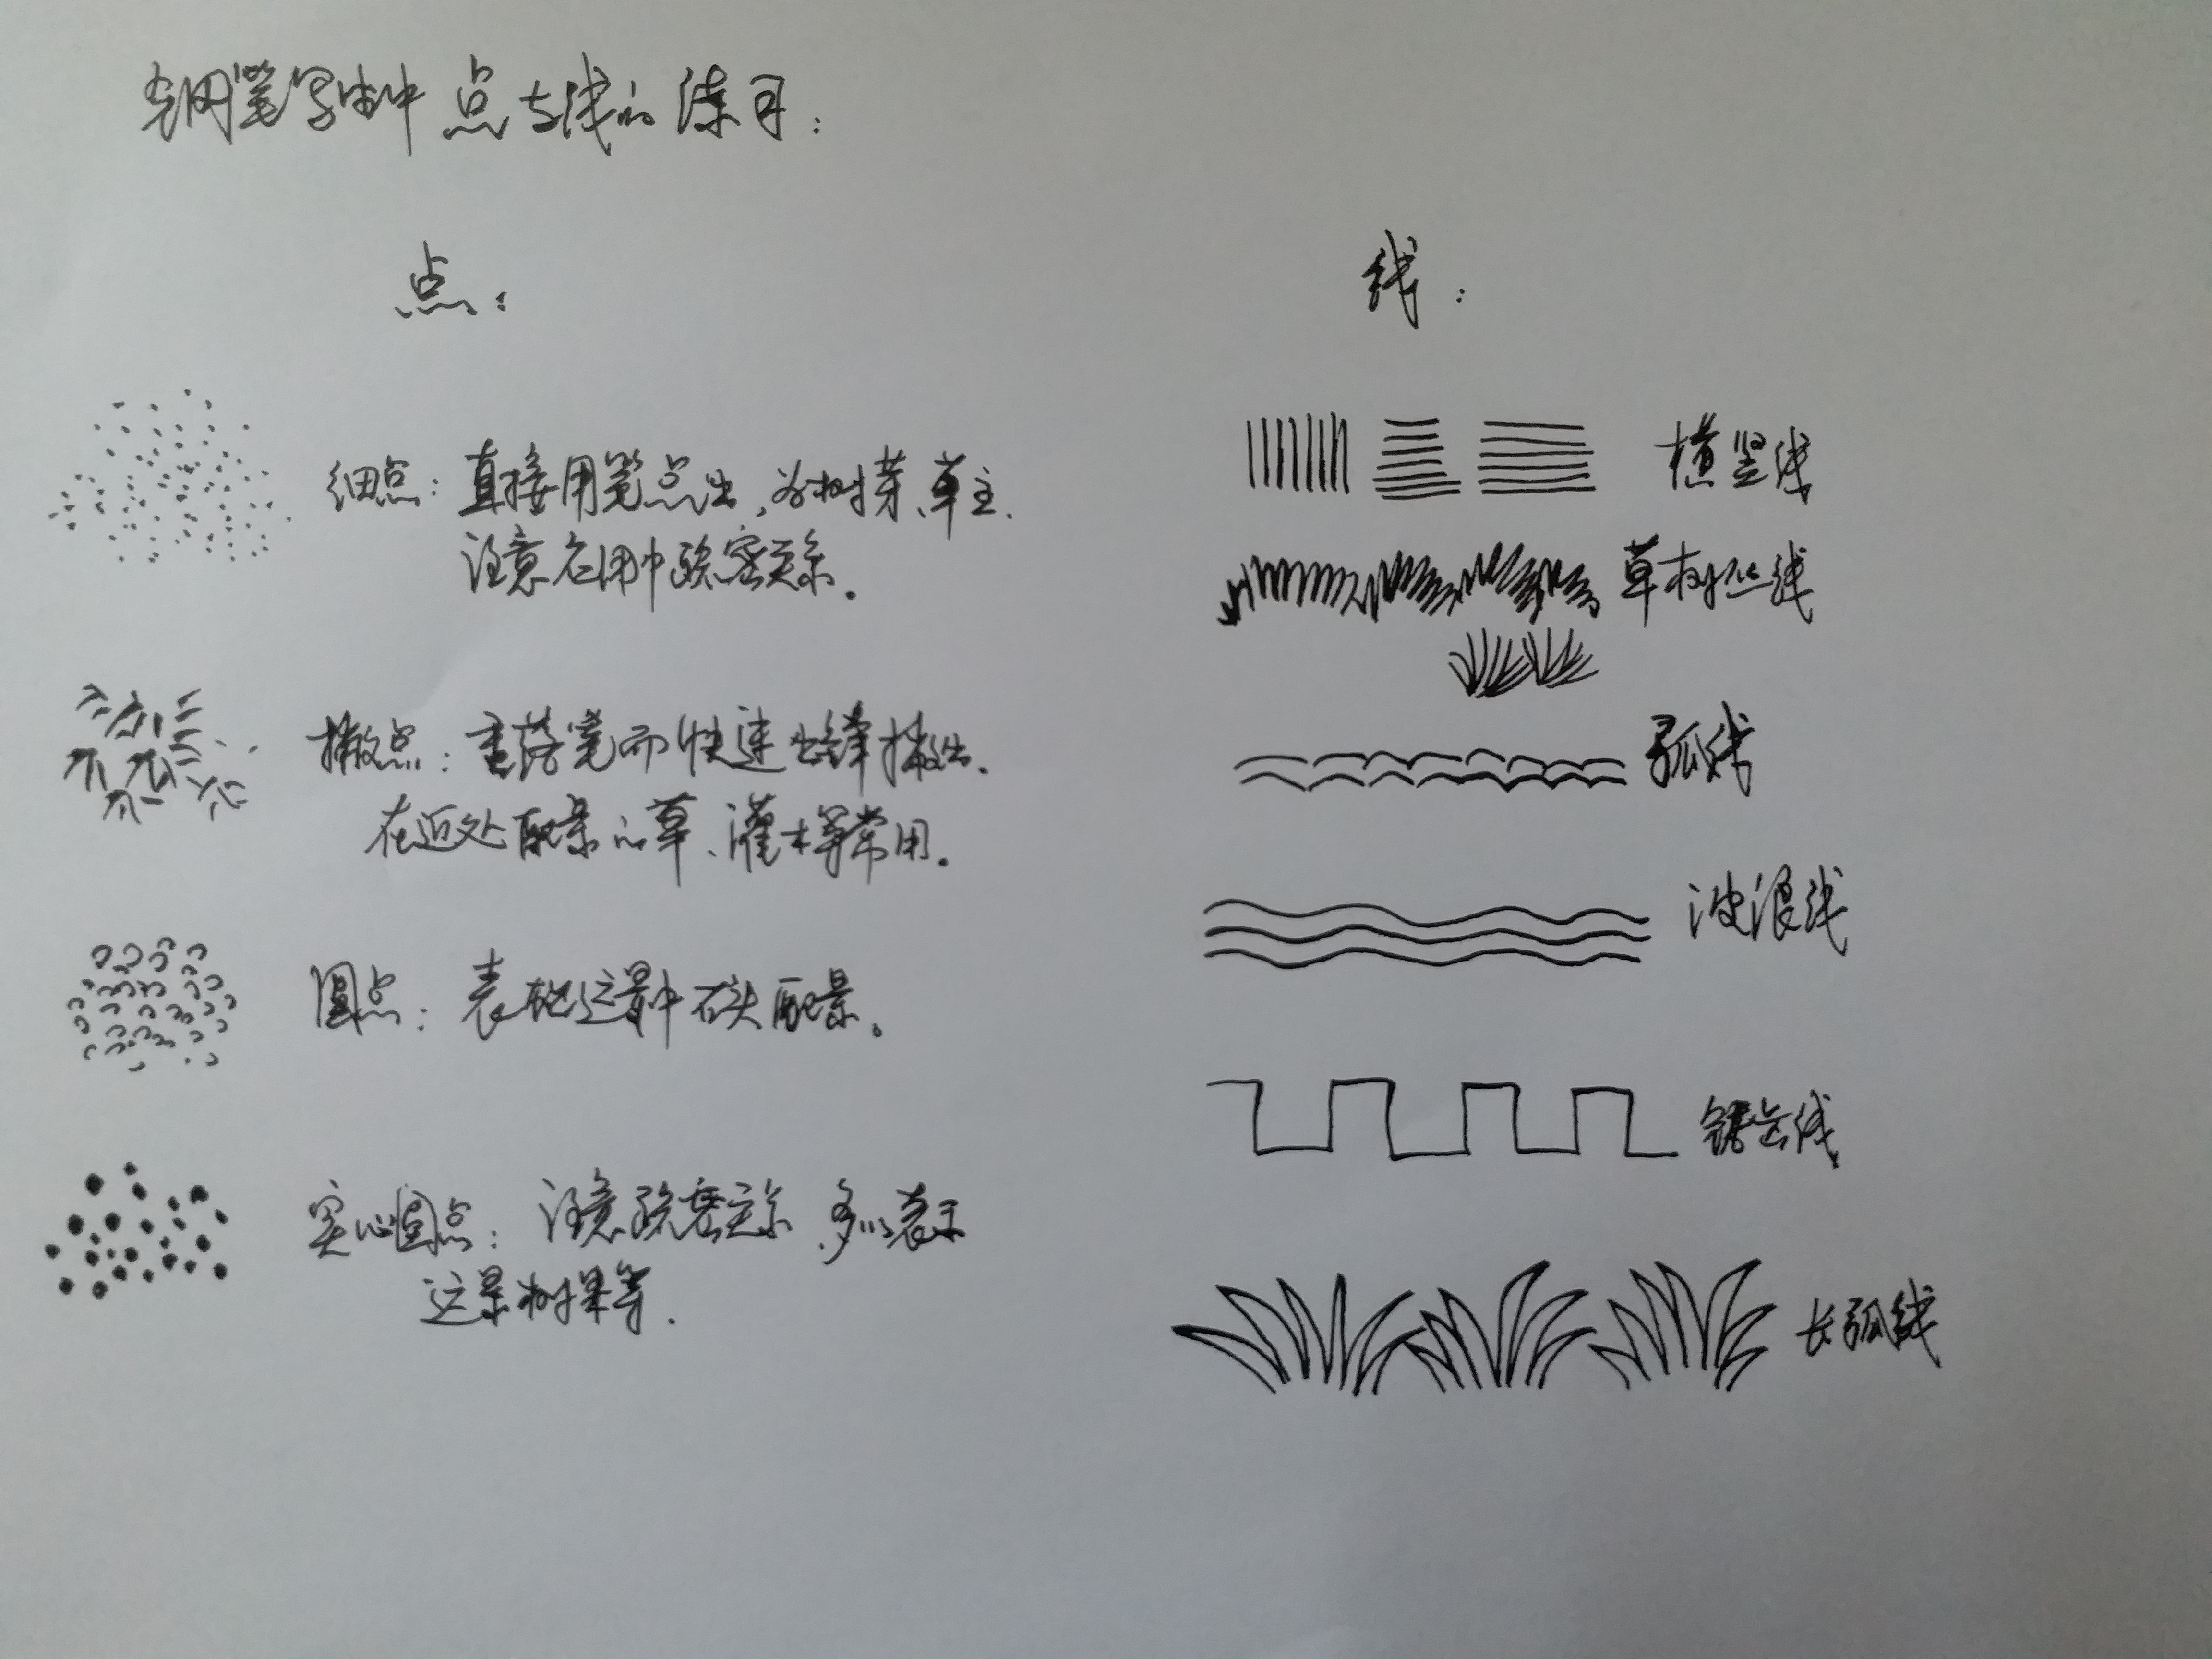 钢笔写中点与线的练习:
点:
细点:直接用笔点出,为树芽、草主.
注意在用中疏密关系.
撇点:重落笔而快速出锋撇出.
在近处配景的草、灌木等常用.
圆点:表现远景中石头配景。
实心圆点:注意疏密关系,多以表示
远景树果等.
线:
横竖线
草树丝线
弧线
波浪线
锯齿线
长弧线